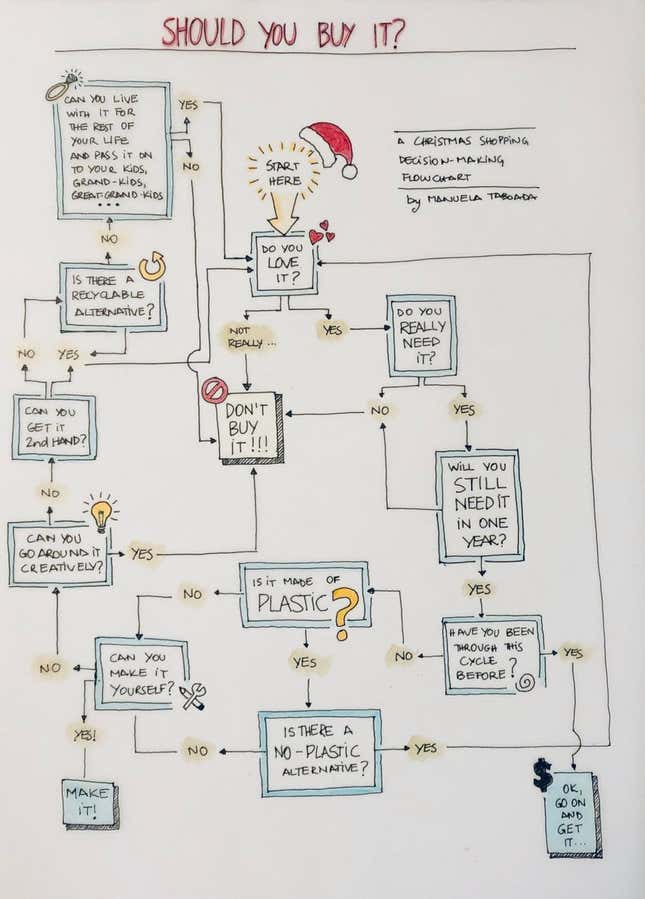 SHOULD YOU BUY IT?
A CHRISTMAS SHOPPING
DECISION-MAKING
FLOWCHART
by MANUELA TABOADA
START
HERE
DO YOU
LOVE
IT?
NOT
REALLY...
YES
DON'T
BUY
IT!!!
DO YOU
REALLY
NEED
IT?
NO
YES
WILL YOU
STILL
NEED IT
IN ONE
YEAR?
YES
HAVE YOU BEEN
THROUGH THIS
CYCLE
BEFORE?
NO
YES
$
OK,
GO ON
AND
GET
IT...
IS IT MADE OF
PLASTIC?
NO
YES
IS THERE A
NO-PLASTIC
ALTERNATIVE?
NO
YES
CAN YOU
MAKE IT
YOURSELF?
NO
YES!
MAKE
IT!
CAN YOU
GO AROUND IT
CREATIVELY?
YES
NO
CAN YOU
GET IT
2nd HAND?
NO
YES
IS THERE A
RECYCLABLE
ALTERNATIVE?
NO
CAN YOU LIVE
WITH IT FOR
THE REST OF
YOUR LIFE
AND PASS IT ON
TO YOUR KIDS,
GRAND-KIDS,
GREAT-GRAND-KIDS
...
YES
NO